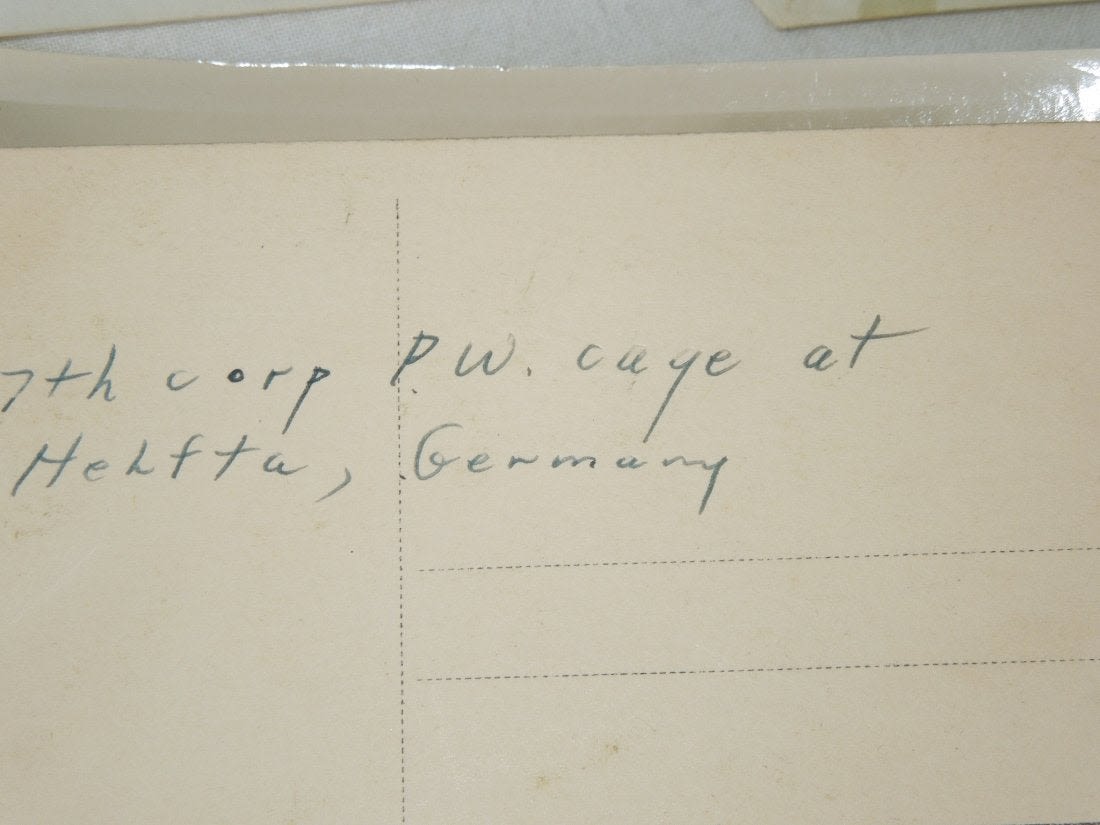 7th corp P.W. cage at
Helfta, Germany